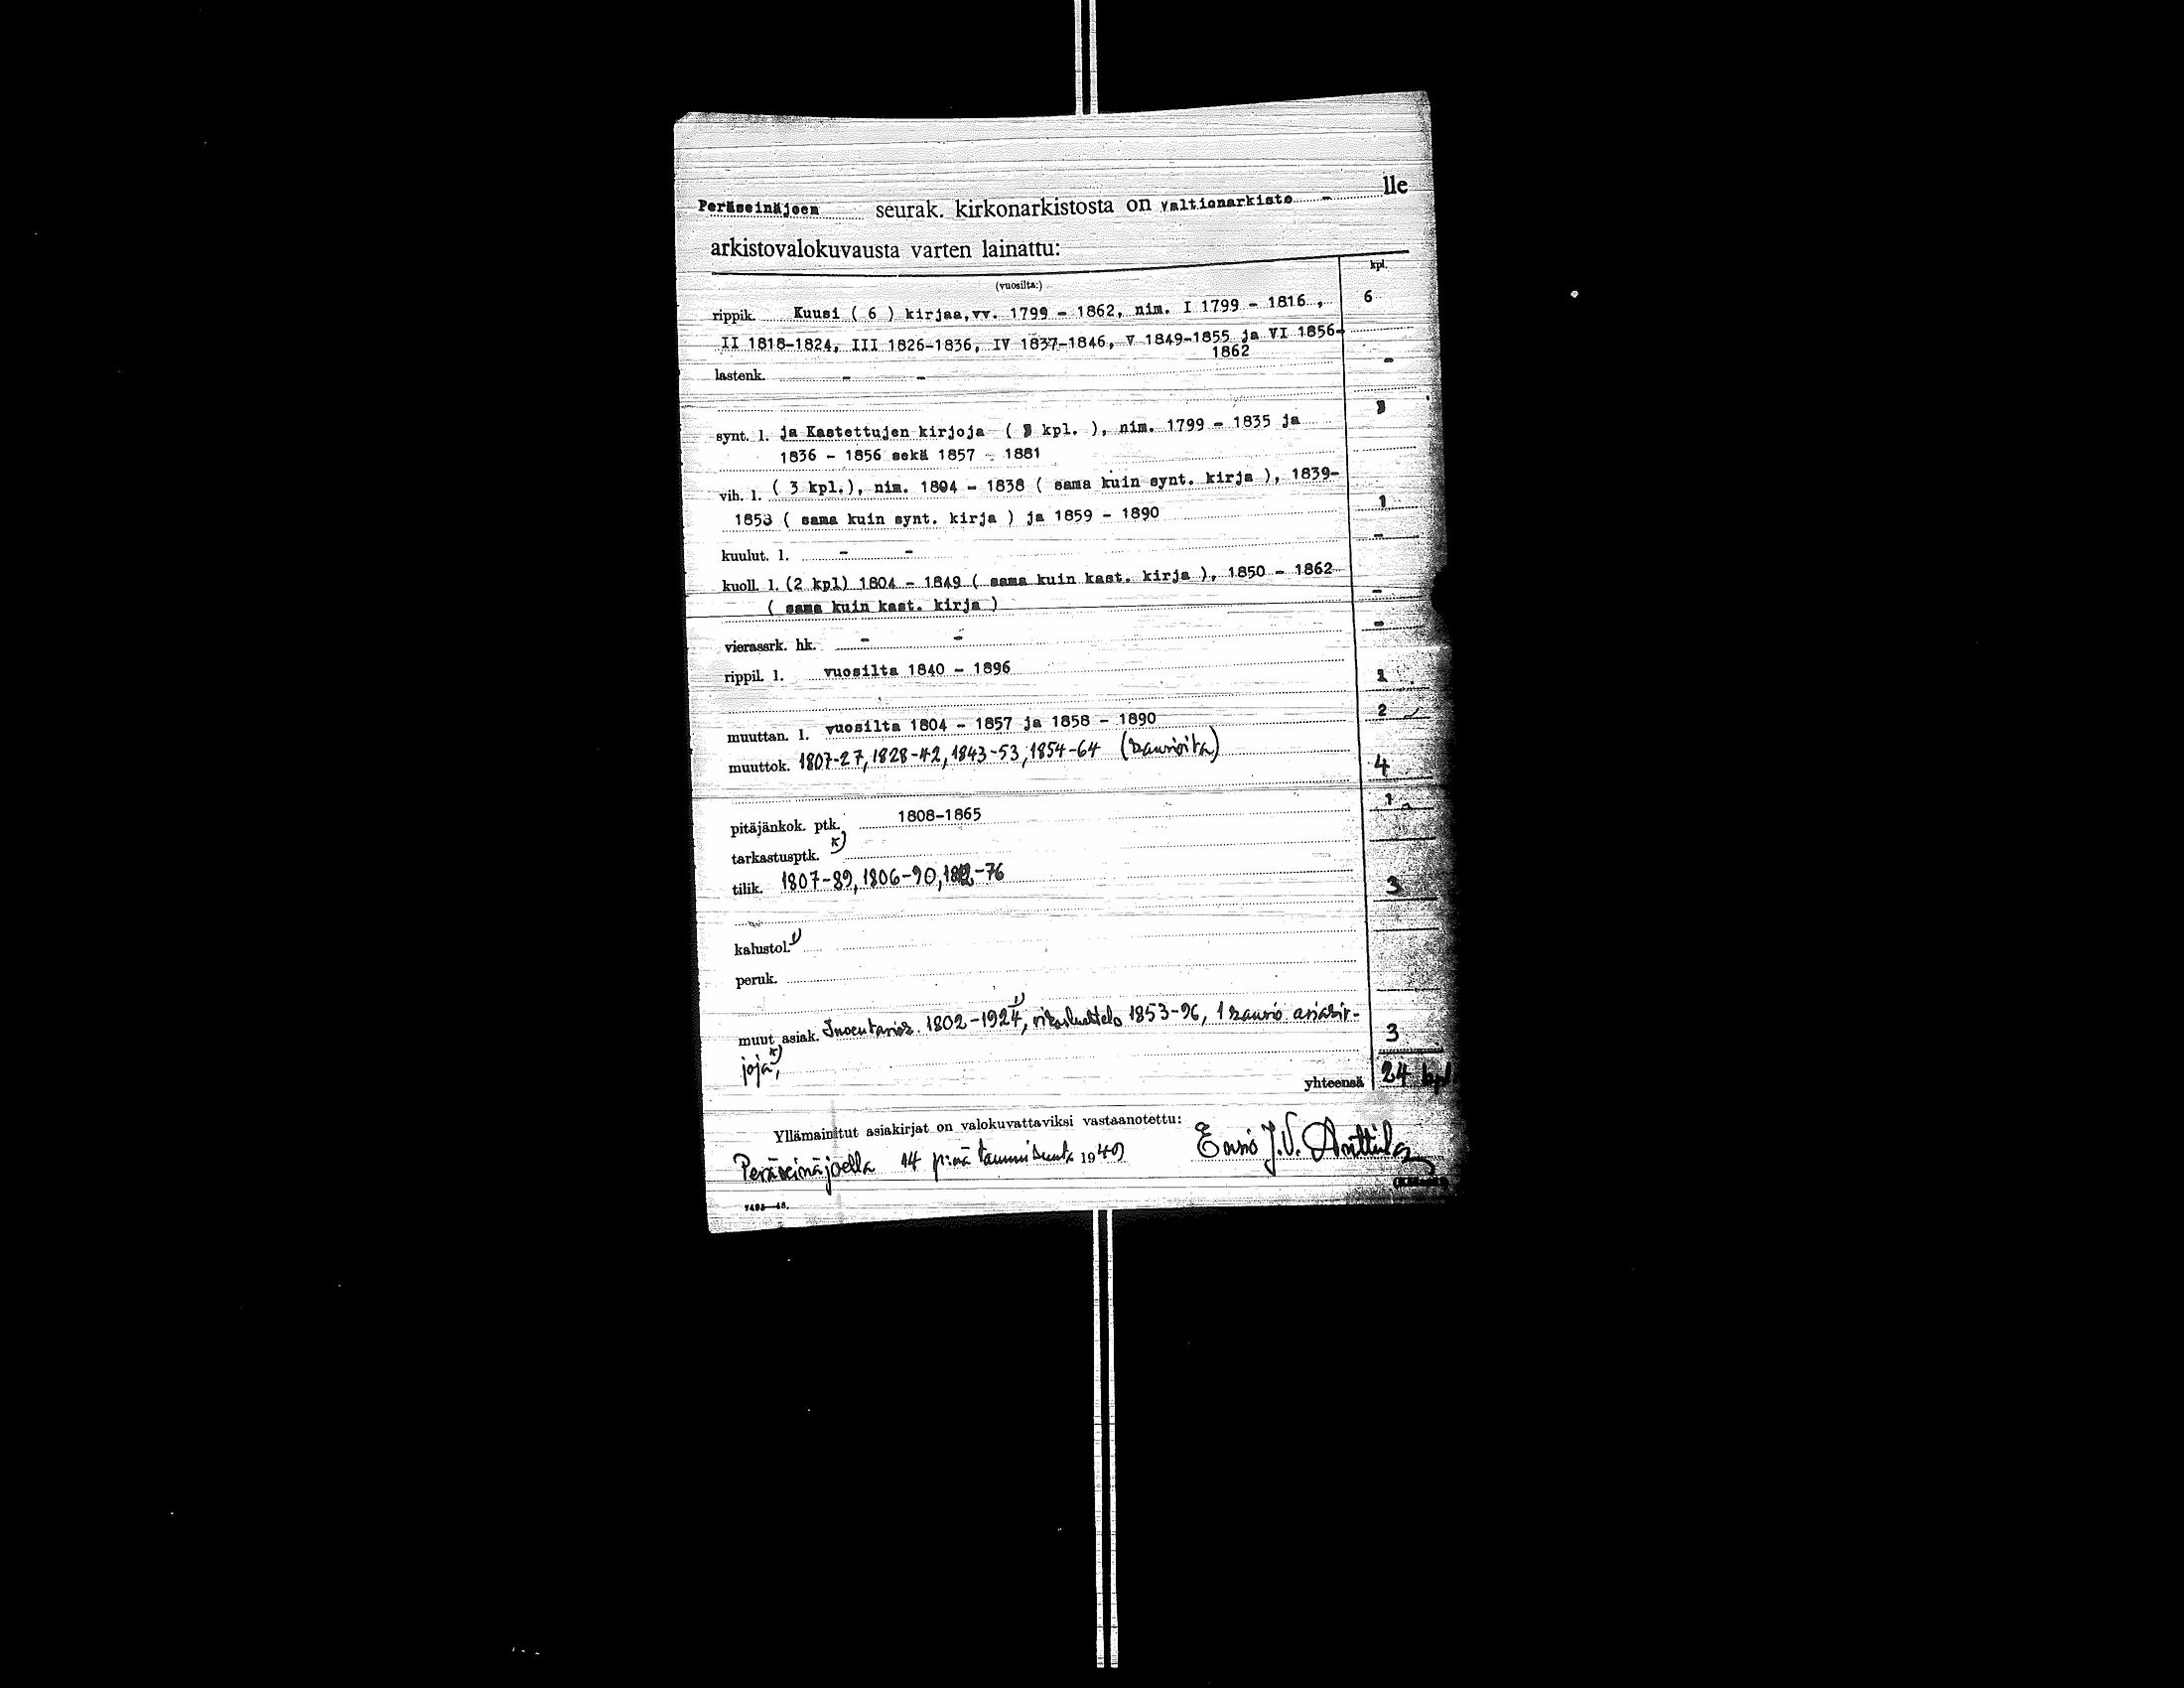 Peräseinäjoen seurak. kirkonarkistosta on valtionarkisto - lle
arkistovalokuvausta varten lainattu:
kpl.
(vuosilta:)
rippik. Kuusi ( 6 ) kirjaa,vv. 1799 - 1862, nim. I 1799 - 1816 , 6
II 1818-1824, III 1826-1836, IV 1837-1846, V 1849-1855 ja VI 1856-
1862
lastenk. - - -
synt. l. ja Kastettujen kirjoja ( kpl. ), nim. 1799 - 1835 ja
1836 - 1856 sekä 1857 - 1881
vih. l. ( 3 kpl.), nim. 1804 - 1838 ( sama kuin synt. kirja ), 1839-
1858 ( sama kuin synt. kirja ) ja 1859 - 1890 1
kuulut. l. - - -
kuoll. l. (2 kpl) 1804 - 1849 ( sama kuin kast. kirja ), 1850 - 1862
( sama kuin kast. kirja ) -
vierassrk. hk. - - -
rippil. l. vuosilta 1840 - 1896 1
muuttan. l. vuosilta 1804 - 1857 ja 1858 - 1890 2
muuttok. 1807-27, 1828-42, 1843-53, 1854-64 (vaurioita) 4
pitäjänkok. ptk. 1808-1865 1
tarkastusptk. x)
tilik. 1807-89, 1806-90, -76 3
kalustol. 1)
peruk.
muut asiak. Inventarios. 1802-1924 1), rikosluettelo 1853-96, 1 asiakir-
joja x), 3
yhteensä 24 kpl
Yllämainitut asiakirjat on valokuvattaviksi vastaanotettu:
Peräseinäjoella 14 p:nä tammikuuta 1949 Ensio J.V. Anttila